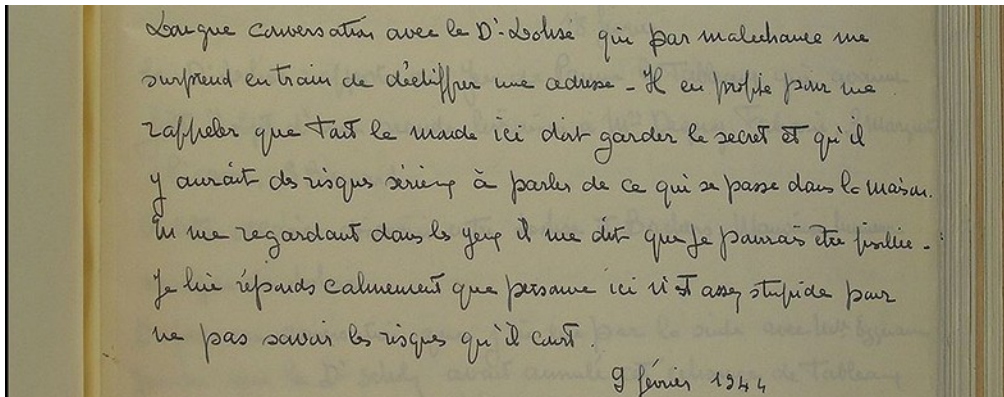 Longue conversation avec le Dr. Lohse qui par malechance me
surprend en train de déchiffrer une adresse - Il en profite pour me
rappeler que tout le monde ici doit garder le secret et qu'il
y aurait des risques sérieux à parler de ce qui se passe dans la maison.
En me regardant dans les yeux il me dit que je pourrais être fusillée -
Je lui réponds calmement que personne ici n'est assez stupide pour
ne pas savoir les risques qu'il court.
9 février 1944